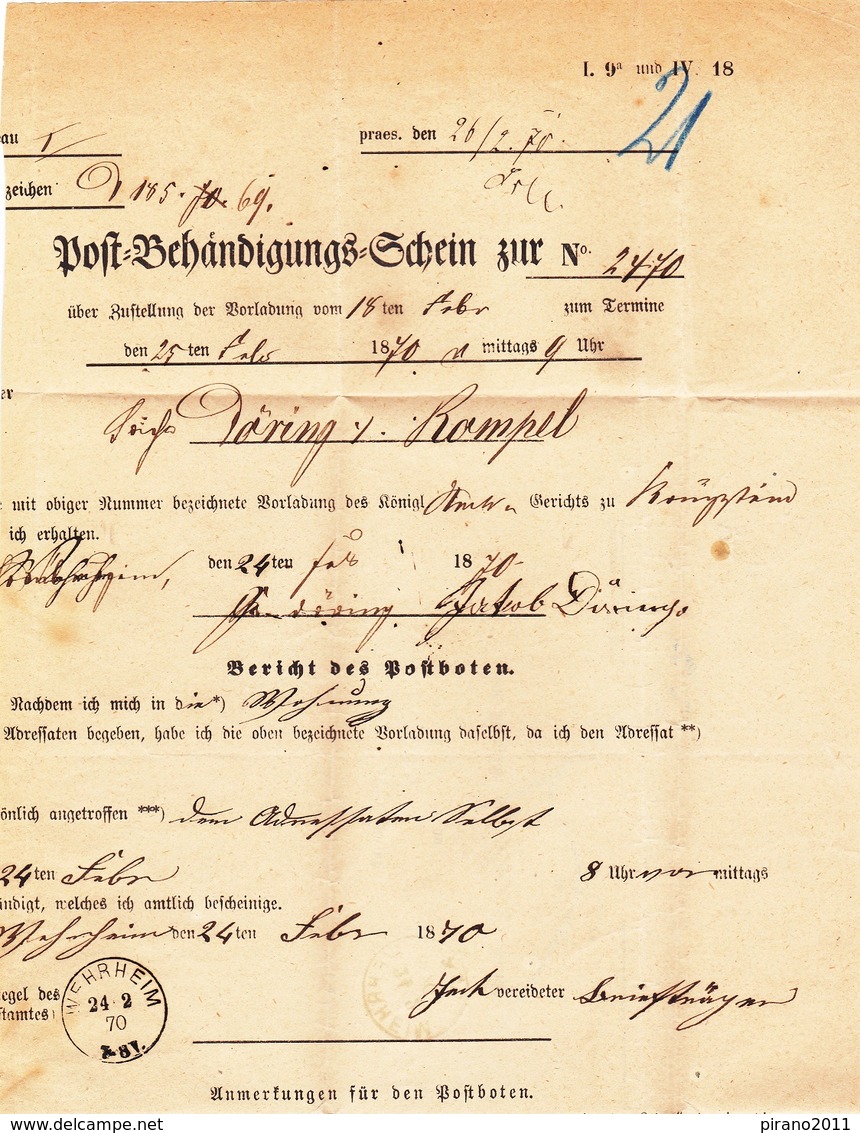 I. 9ª und IV. 18
21
eau I
praes. den 26/2. 70.
zeichen D 185. 70. 69.
Post-Behändigungs-Schein zur No. 2470
über Zustellung der Vorladung vom 18ten Febr zum Termine
den 25ten Feb 1870 v mittags 9 Uhr
er
Döring /. Kompel
mit obiger Nummer bezeichnete Vorladung des Königl Amts Gerichts zu
ich erhalten.
den 24ten Feb 1870
döring Jakob Döring
Bericht des Postboten.
Nachdem ich mich in die*) Wohnung
Adressaten begeben, habe ich die oben bezeichnete Vorladung daselbst, da ich den Adressat **)
önlich angetroffen ***) dem Adressaten Selbst
24ten Febr 8 Uhr vor mittags
ändigt, welches ich amtlich bescheinige.
Wehrheim den 24ten Febr 1870
iegel des
stamtes)
WEHRHEIM
24 2
70
vereideter Briefträger
Anmerkungen für den Postboten.
www.delcampe.net
pirano2011